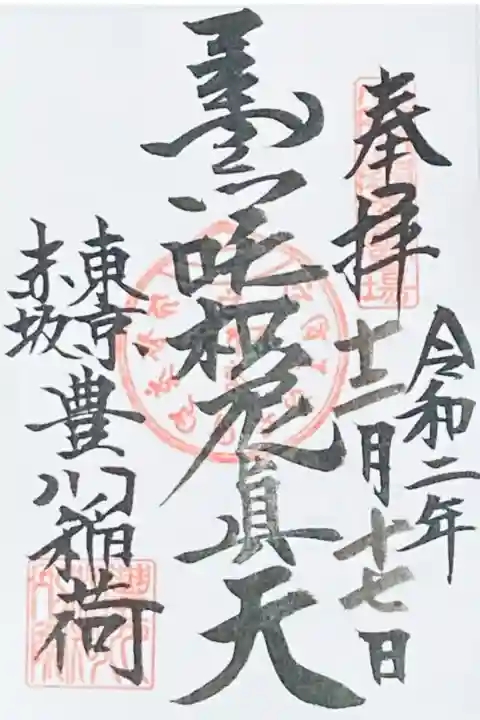 奉拝
令和二年
十二月十七日
豊川吒枳尼眞天
東京
赤坂
豊川稲荷